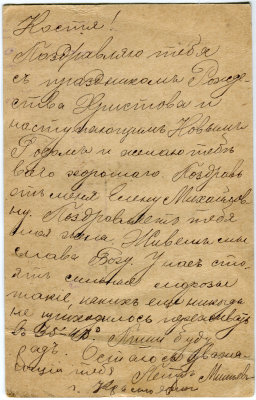 Костя!
Поздравляю тебя
съ праздникомъ Рожде-
ства Христова и
наступающимъ Новымъ
Годомъ и желаю тебѣ
всего хорошаго. Поздравь
отъ меня Елену Михайлов-
ну. Поздравляетъ тебя
моя жена. Живемъ мы
слава Богу. У насъ сто-
ятъ сильные морозы
такіе, какихъ еще никогда
не приходилось переживать
въ 35-40°. Пиши буду
радъ. Остаюсь уважа-
ющій тебя Петръ
г.